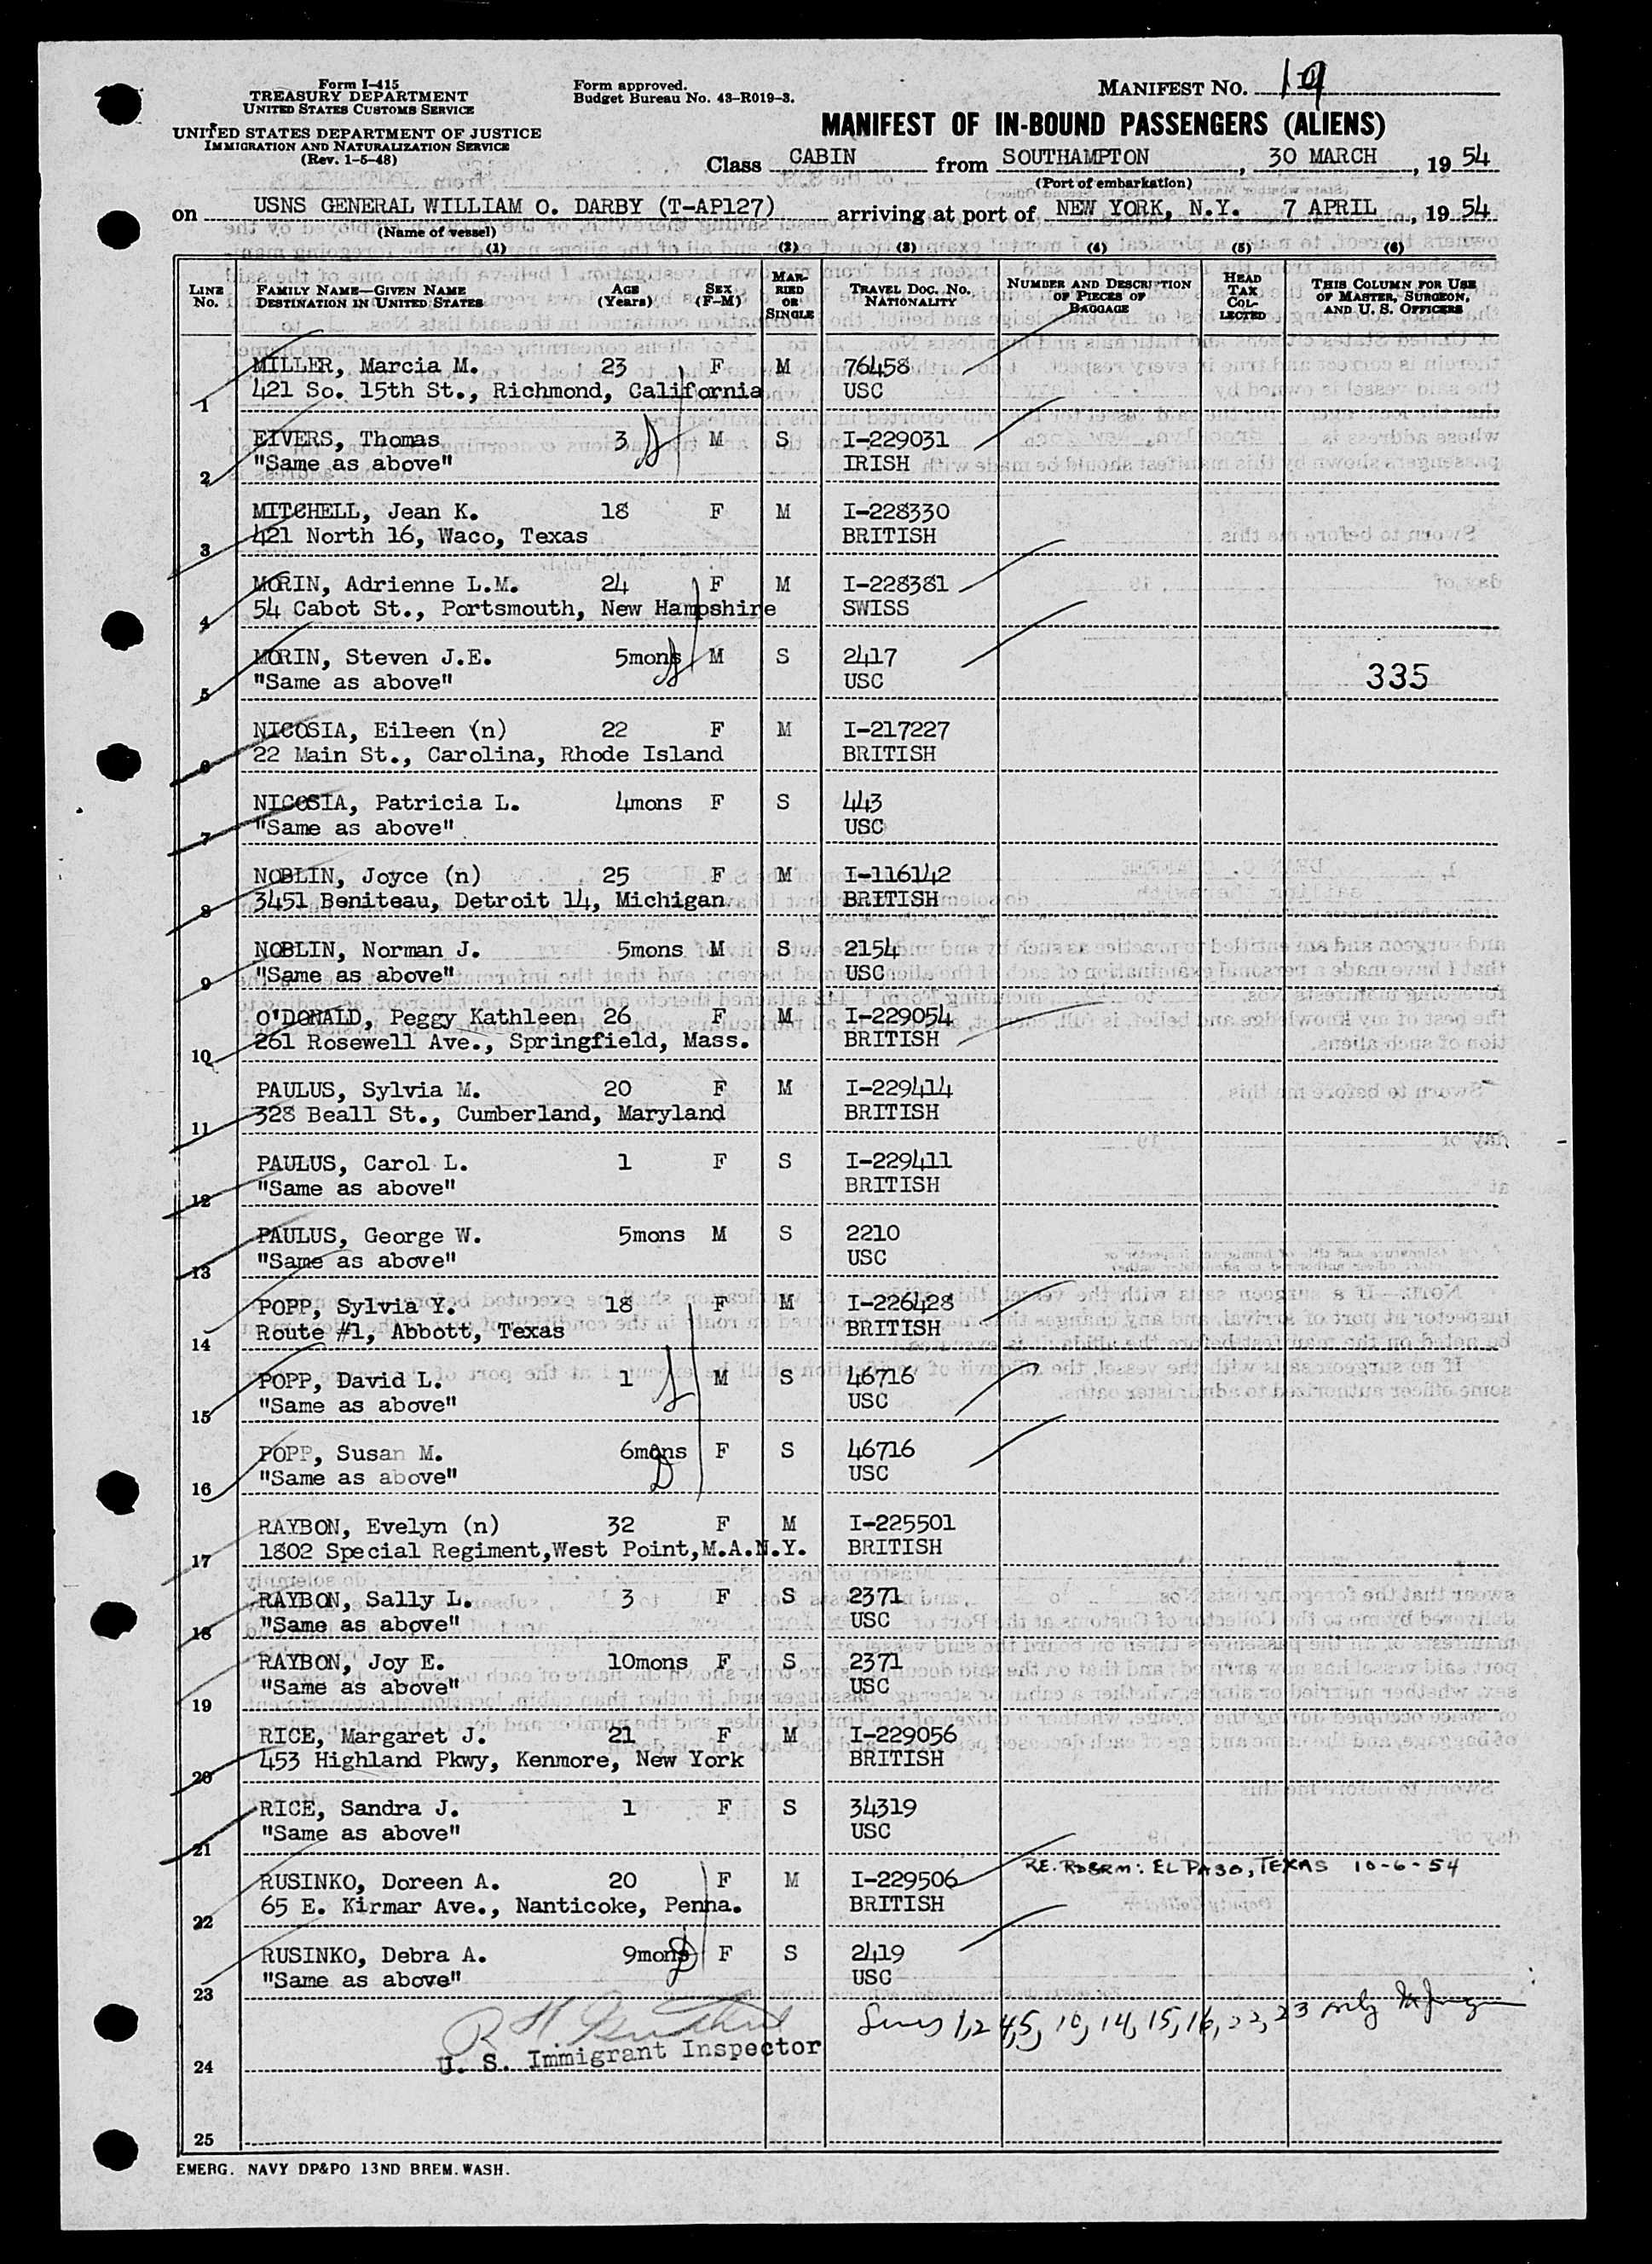 Form I-415
TREASURY DEPARTMENT
UNITED STATES CUSTOMS SERVICE
UNITED STATES DEPARTMENT OF JUSTICE
IMMIGRATION AND NATURALIZATION SERVICE
(Rev. 1-5-48)
Form approved.
Budget Bureau No. 43-R019-3.
MANIFEST NO. 19
MANIFEST OF IN-BOUND PASSENGERS (ALIENS)
Class CABIN from SOUTHAMPTON, 30 MARCH, 19 54
(Port of embarkation)
on USNS GENERAL WILLIAM O. DARBY (T-AP127) arriving at port of NEW YORK, N.Y. 7 APRIL, 19 54
(Name of vessel)
(1) (2) (3) (4) (5) (6)
LINE No. FAMILY NAME—GIVEN NAME DESTINATION IN UNITED STATES AGE (Years) SEX (F-M) MARRIED OR SINGLE TRAVEL DOC. NO. NATIONALITY NUMBER AND DESCRIPTION OF PIECES OF BAGGAGE HEAD TAX COLLECTED THIS COLUMN FOR USE OF MASTER, SURGEON, AND U. S. OFFICERS
MILLER, Marcia M. 23 F M 76458
1 421 So. 15th St., Richmond, California USC
EIVERS, Thomas 3 M S I-229031
2 "Same as above" IRISH
MITCHELL, Jean K. 18 F M I-228330
3 421 North 16, Waco, Texas BRITISH
MORIN, Adrienne L.M. 24 F M I-228381
4 54 Cabot St., Portsmouth, New Hampshire SWISS
MORIN, Steven J.E. 5mons M S 2417
5 "Same as above" USC 335
NICOSIA, Eileen (n) 22 F M I-217227
6 22 Main St., Carolina, Rhode Island BRITISH
NICOSIA, Patricia L. 4mons F S 443
7 "Same as above" USC
NOBLIN, Joyce (n) 25 F M I-116142
8 3451 Beniteau, Detroit 14, Michigan BRITISH
NOBLIN, Norman J. 5mons M S 2154
9 "Same as above" USC
O'DONALD, Peggy Kathleen 26 F M I-229054
10 261 Rosewell Ave., Springfield, Mass. BRITISH
PAULUS, Sylvia M. 20 F M I-229414
11 328 Beall St., Cumberland, Maryland BRITISH
PAULUS, Carol L. 1 F S I-229411
12 "Same as above" BRITISH
PAULUS, George W. 5mons M S 2210
13 "Same as above" USC
POPP, Sylvia Y. 18 F M I-226428
14 Route #1, Abbott, Texas BRITISH
POPP, David L. 1 M S 46716
15 "Same as above" USC
POPP, Susan M. 6mons F S 46716
16 "Same as above" USC
RAYBON, Evelyn (n) 32 F M I-225501
17 1802 Special Regiment,West Point,M.A.N.Y. BRITISH
RAYBON, Sally L. 3 F S 2371
18 "Same as above" USC
RAYBON, Joy E. 10mons F S 2371
19 "Same as above" USC
RICE, Margaret J. 21 F M I-229056
20 453 Highland Pkwy, Kenmore, New York BRITISH
RICE, Sandra J. 1 F S 34319
21 "Same as above" USC
RUSINKO, Doreen A. 20 F M I-229506 EL PASO, TEXAS 10-6-54
22 65 E. Kirmar Ave., Nanticoke, Penna. BRITISH
RUSINKO, Debra A. 9mons F S 2419
23 "Same as above" USC
Lines 1,2 4,5, 10, 14, 15, 16, 22, 23 only
U. S. Immigrant Inspector
24
25
EMERG. NAVY DP&PO 13ND BREM. WASH.